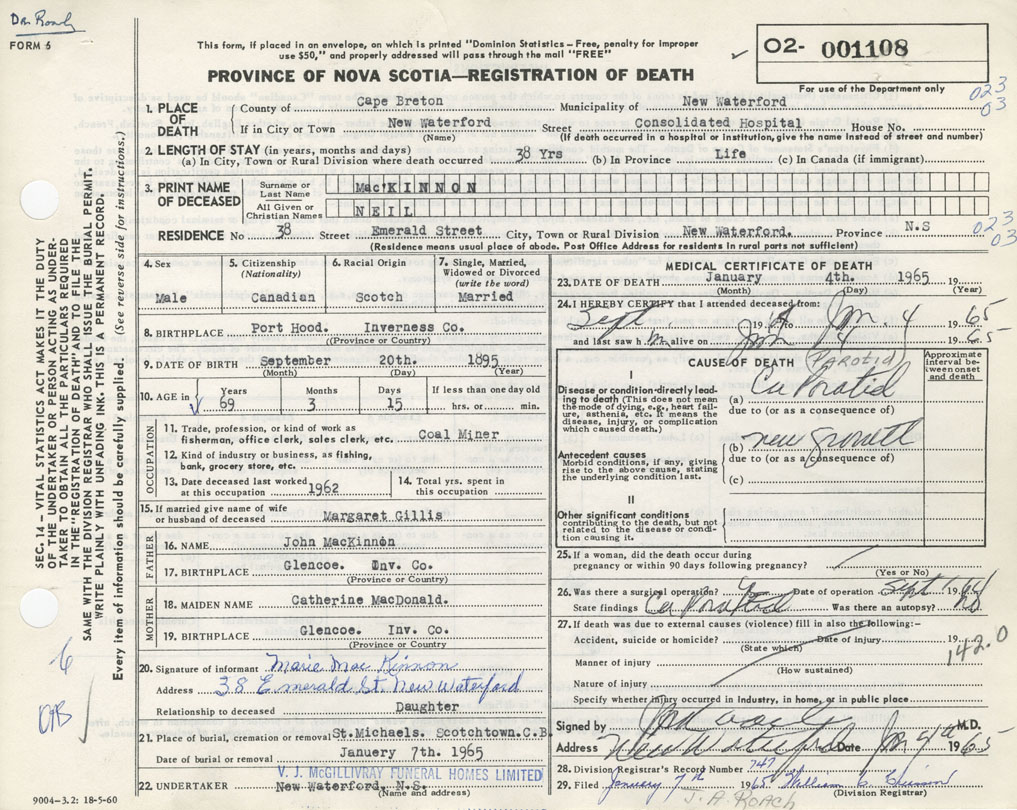 Dr. Roach
FORM 6
This form, if placed in an envelope, on which is printed "Dominion Statistics – Free, penalty for improper
use $50," and properly addressed will pass through the mail "FREE"
PROVINCE OF NOVA SCOTIA—REGISTRATION OF DEATH
02- 001108
For use of the Department only
023
03
1. PLACE OF DEATH
County of Cape Breton Municipality of New Waterford
If in City or Town New Waterford Street Consolidated Hospital House No.
(Name) (If death occurred in a hospital or institution, give the name instead of street and number)
2. LENGTH OF STAY (in years, months and days)
(a) In City, Town or Rural Division where death occurred 38 Yrs (b) In Province Life (c) In Canada (if immigrant)
3. PRINT NAME OF DECEASED
Surname or Last Name MacKINNON
All Given or Christian Names NEIL
RESIDENCE No 38 Street Emerald Street City, Town or Rural Division New Waterford. Province N.S
023
03
(Residence means usual place of abode. Post Office Address for residents in rural parts not sufficient)
4. Sex Male
5. Citizenship (Nationality) Canadian
6. Racial Origin Scotch
7. Single, Married, Widowed or Divorced (write the word) Married
8. BIRTHPLACE Port Hood. Inverness Co.
((Province or Country)
9. DATE OF BIRTH September 20th. 1895
(Month) (Day) (Year)
10. AGE in Years 69 Months 3 Days 15 If less than one day old hrs. or min.
OCCUPATION
11. Trade, profession, or kind of work as
fisherman, office clerk, sales clerk, etc. Coal Miner
12. Kind of industry or business, as fishing,
bank, grocery store, etc.
13. Date deceased last worked
at this occupation 1962
14. Total yrs. spent in
this occupation
15. If married give name of wife
or husband of deceased Margaret Gillis
FATHER
16. NAME John MacKinnon
17. BIRTHPLACE Glencoe. Inv. Co.
(Province or Country)
MOTHER
18. MAIDEN NAME Catherine MacDonald.
19. BIRTHPLACE Glencoe. Inv. Co.
(Province or Country)
20. Signature of informant Marie MacKinnon
Address 38 Emerald St. New Waterford
Relationship to deceased Daughter
21. Place of burial, cremation or removal St.Michaels. Scotchtown.C.B.
Date of burial or removal Januery 7th. 1965
V. J. McGILLIVRAY FUNERAL HOMES LIMITED
22. UNDERTAKER New Waterford, N.S.
(Name and address)
9004–3.2: 18-5-60
MEDICAL CERTIFICATE OF DEATH
23. DATE OF DEATH January 4th. 1965 19
(Month) (Day) (Year)
24. I HEREBY CERTIFY that I attended deceased from:
Sept 19 to Jan. 4 1965
and last saw him alive on Jan 4 1965
CAUSE OF DEATH
(PAROTID)
Approximate interval between onset and death
I
Disease or condition directly leading to death (This does not mean the mode of dying, e.g., heart failure, asthenia, etc. It means the disease, injury, or complication which caused death.)
(a) Ca Parotid
due to (or as a consequence of)
Antecedent causes
Morbid conditions, if any, giving rise to the above cause, stating the underlying condition last.
(b) new growth
due to (or as a consequence of)
(c)
II
Other significant conditions
contributing to the death, but not related to the disease or condition causing it.
25. If a woman, did the death occur during
pregnancy or within 90 days following pregnancy?
(Yes or No)
26. Was there a surgical operation? Date of operation Sept 1964
State findings Ca Parotid Was there an autopsy? No
27. If death was due to external causes (violence) fill in also the following:–
Accident, suicide or homicide? Date of injury 19
(State which)
142.0
Manner of injury
(How sustained)
Nature of injury
Specify whether injury occurred in industry, in home, or in public place
Signed by M.D.
Address New Waterford Date Jan 4th 1965
28. Division Registrar's Record Number 747
29. Filed January 7th 1965 William
(Division Registrar)
J. A. ROACH
SEC. 14 – VITAL STATISTICS ACT MAKES IT THE DUTY
OF THE UNDERTAKER OR PERSON ACTING AS UNDER-
TAKER TO OBTAIN ALL THE PARTICULARS REQUIRED
IN THE "REGISTRATION OF DEATH" AND TO FILE THE
SAME WITH THE DIVISION REGISTRAR WHO SHALL ISSUE THE BURIAL PERMIT.
WRITE PLAINLY WITH UNFADING INK. THIS IS A PERMANENT RECORD.
Every item of information should be carefully supplied. (See reverse side for instructions.)